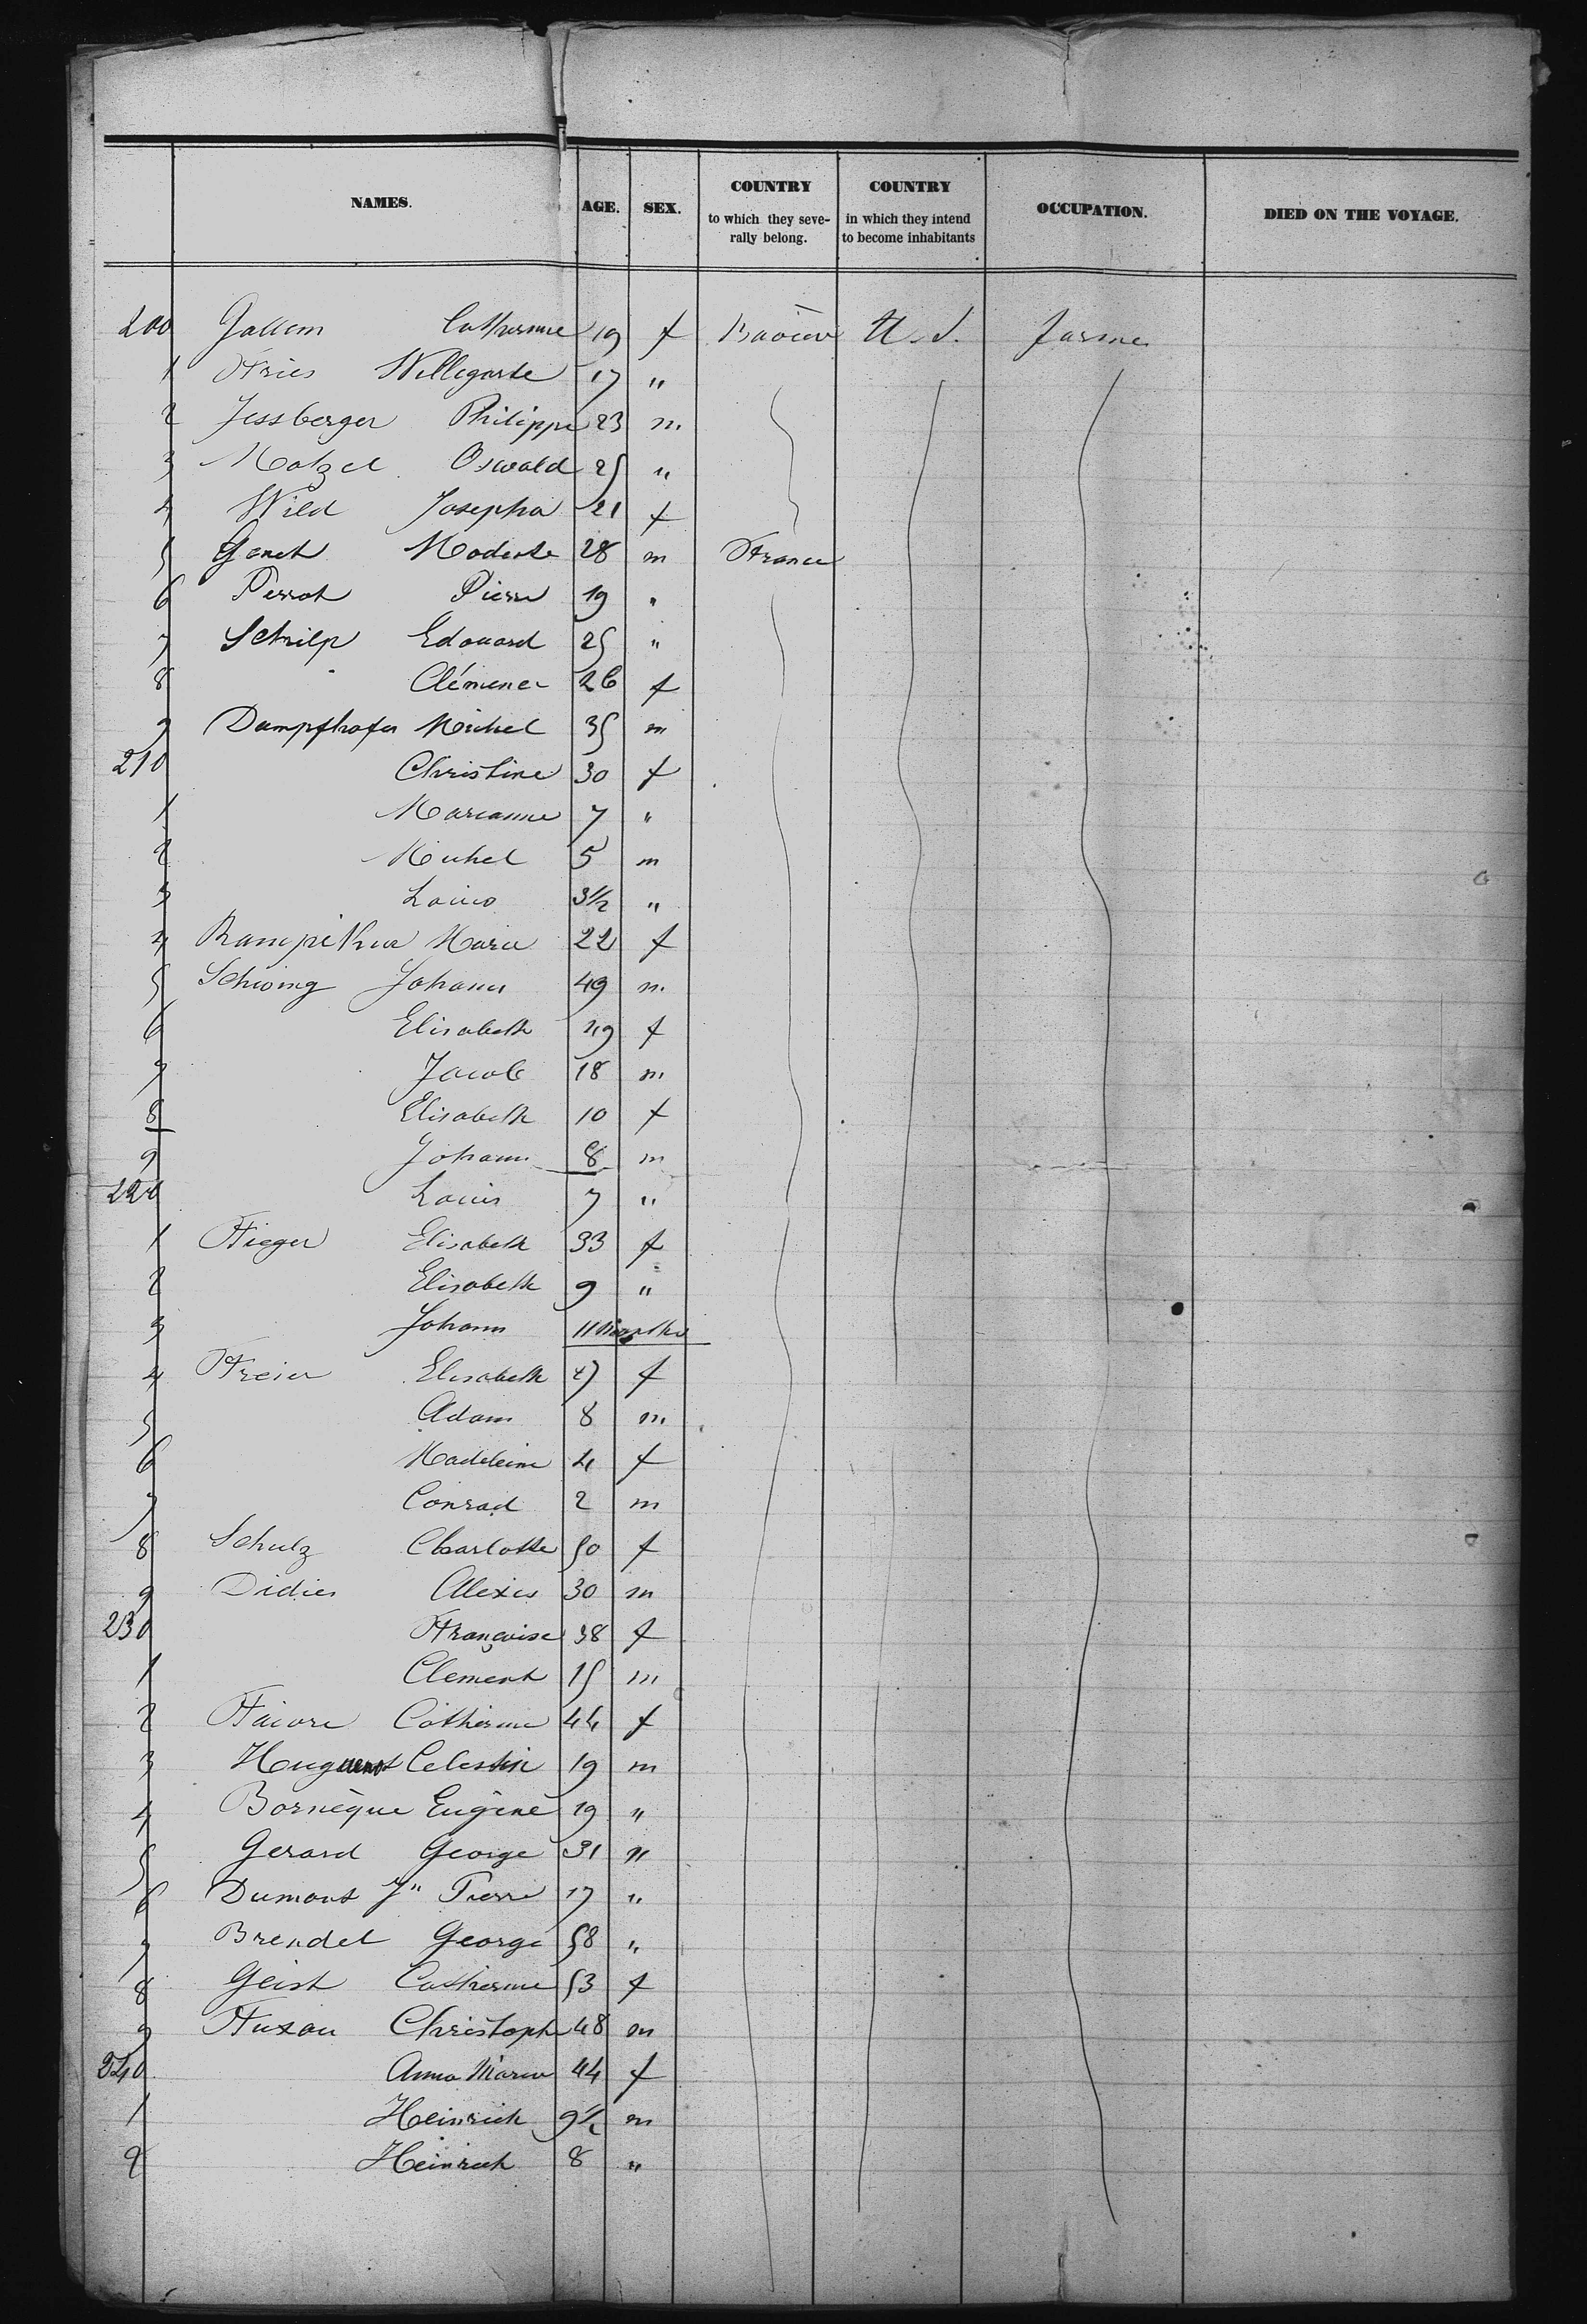 NAMES. AGE. SEX. COUNTRY to which they seve- rally belong. COUNTRY in which they intend to become inhabitants OCCUPATION. DIED ON THE VOYAGE.
200 Catherine 19 f U. S. farmer
1 Fries Willegarde 17 "
2 Jessberger Philippe 23 m.
3 Motzel Oswald 25 "
4 Wild Josepha 21 f
5 Modeste 28 m France
6 Perrot Pierre 19 "
7 Schilp Edouard 25 "
8 Clémence 26 f
9 Dampfhofer Michel 35 m
210 Christine 30 f
1 Marianne 7 "
2 Michel 5 m
3 Louis 3½ "
4 Marie 22 f
5 Johann 49 m.
6 Elisabeth 49 f
7 Jacob 18 m
8 Elisabeth 10 f
9 Johann 8 m
220 Louis 7 "
1 Fieger Elisabeth 33 f
2 Elisabeth 9 "
3 Johann 11 Months
4 Freier Elisabeth 47 f
5 Adam 8 m
6 Madeleine 4 f
7 Conrad 2 m
8 Schulz Charlotte 50 f
9 Didier Alexis 30 m
230 Françoise 38 f
1 Clement 15 m
2 Faivre Catherine 44 f
3 Huguenot Celestin 19 m
4 Bornèque Eugène 19 "
5 Gerard George 31 "
6 Dumont Jn Pierre 17 "
7 Brendel George 58 "
8 Geist Catherine 53 f
9 Christoph 48 m
240 Anna Marie 44 f
1 Heinrich 9½ m
2 Heinrich 8 "